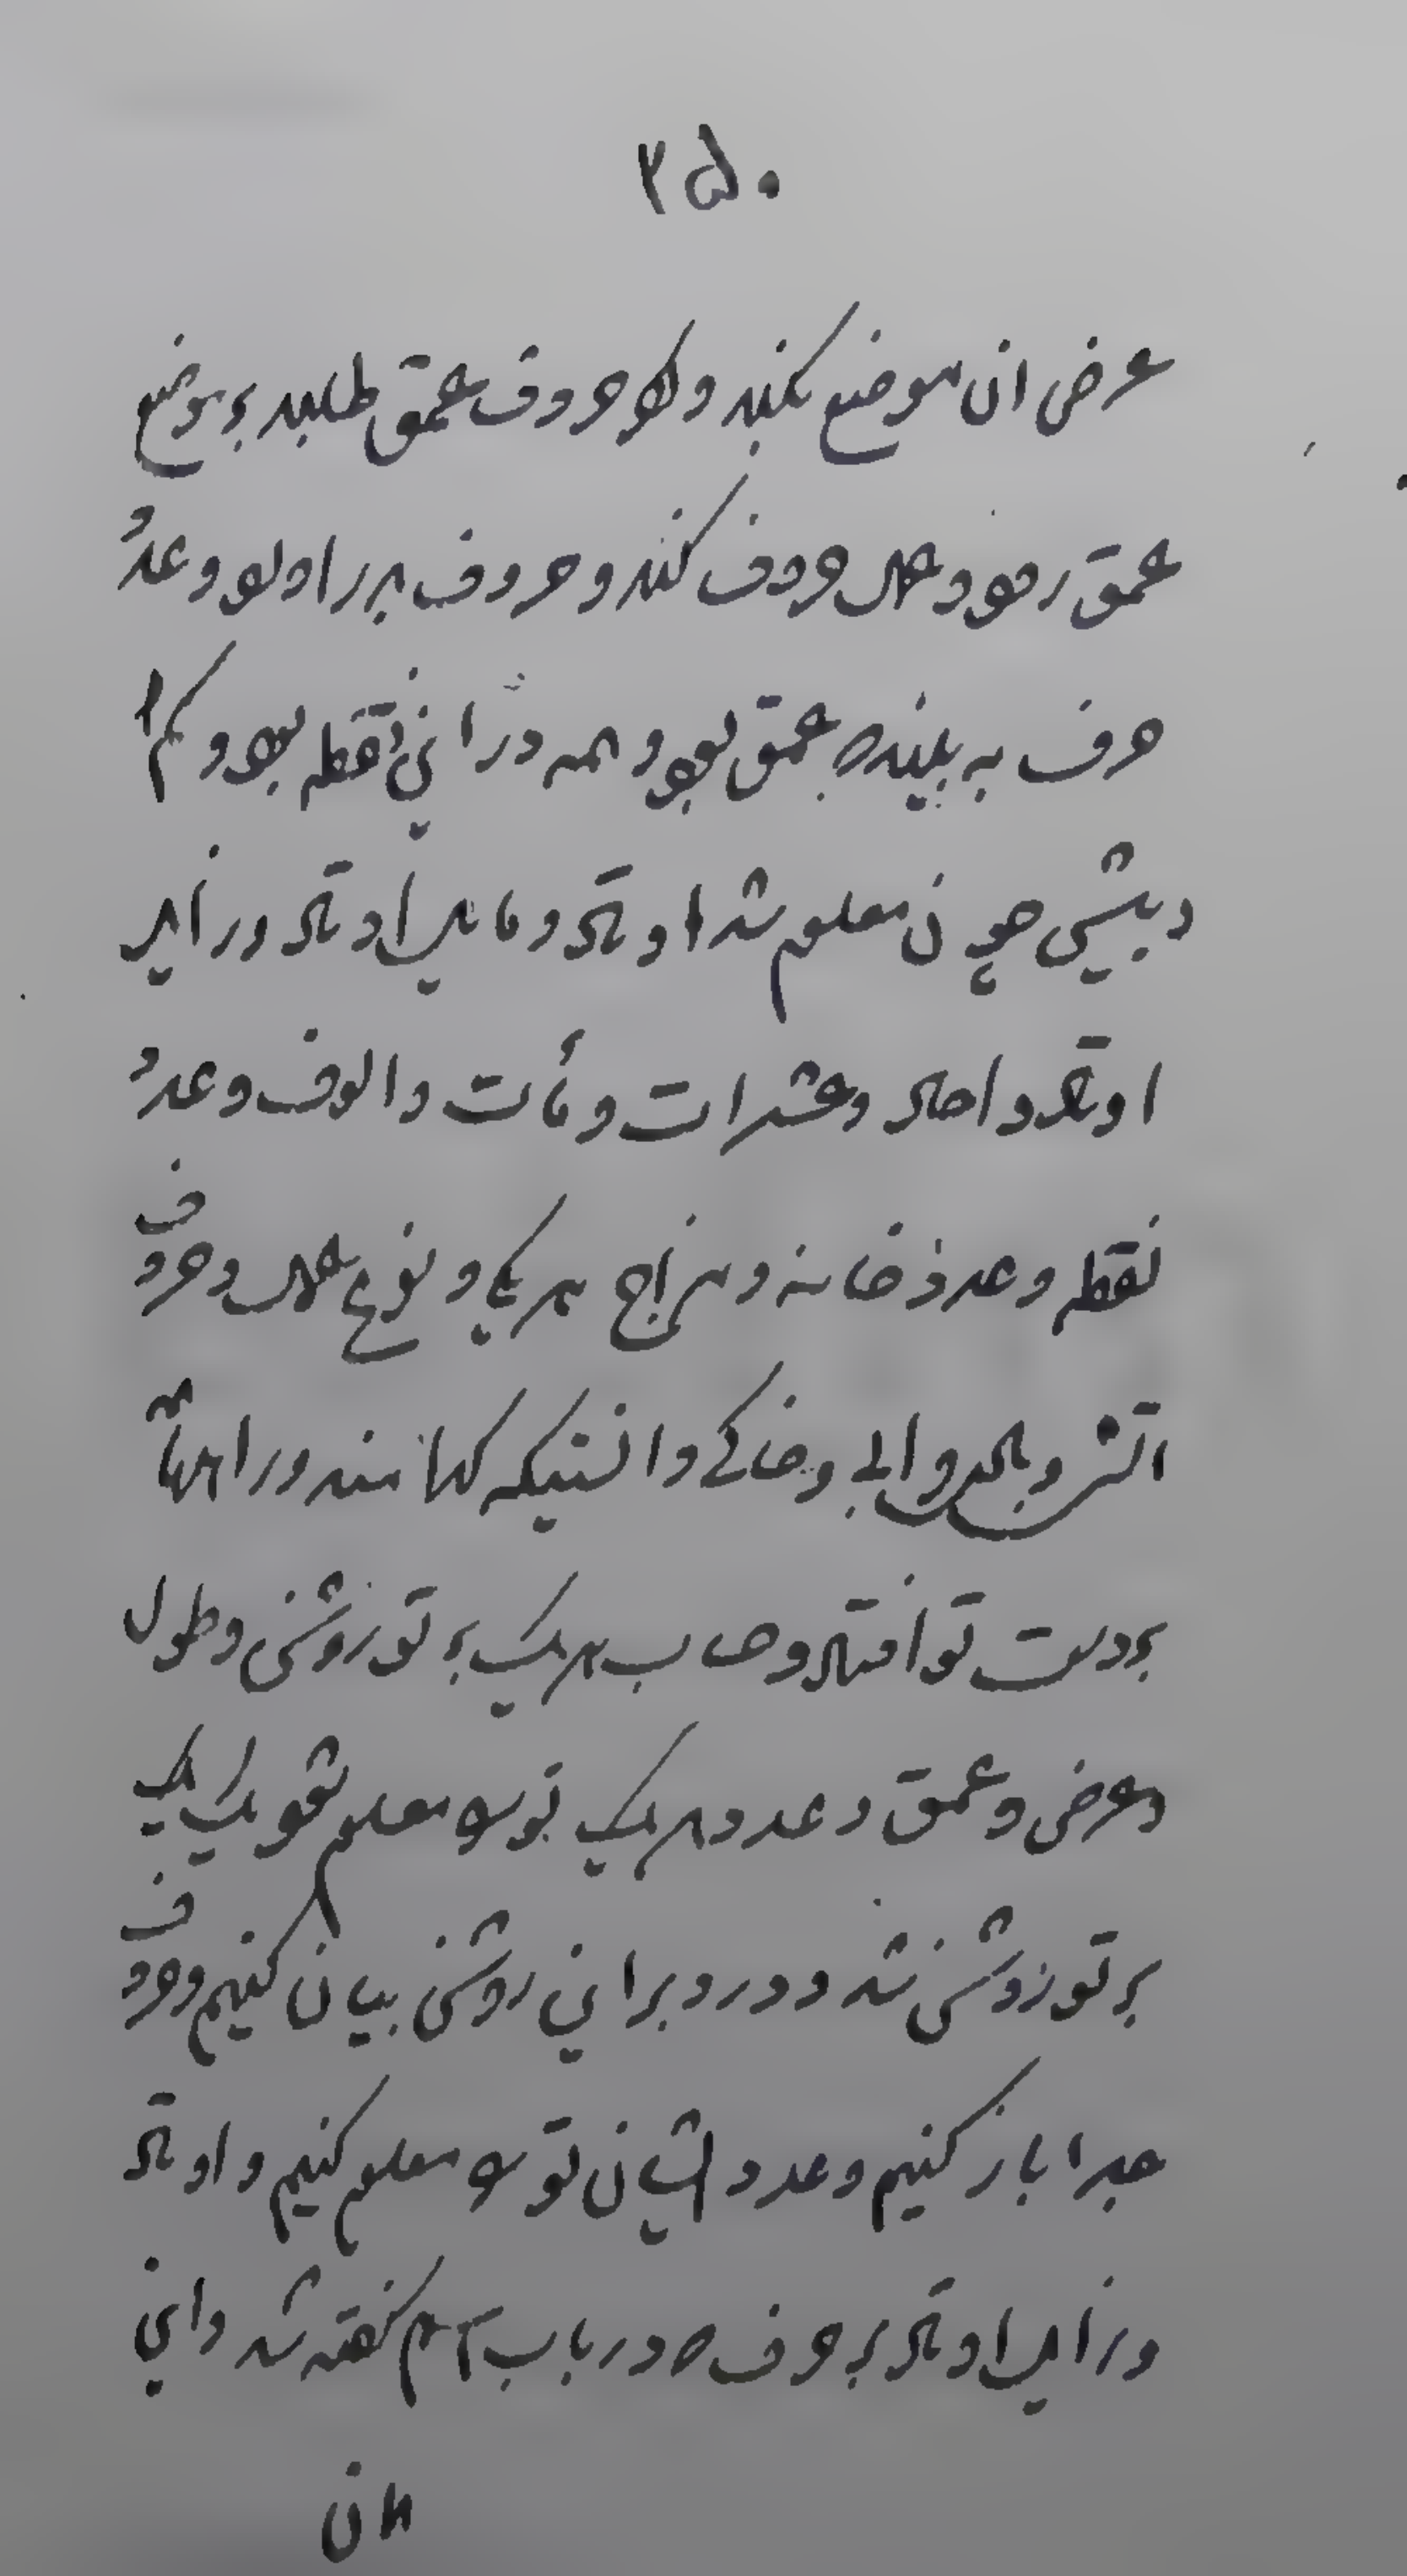 ۳۵۰
عرض ان موضع بکنند و اکر حروف عمق طلبد بر موضع
عمق رود و عمل حروف کنند و حروف برر اول بود و عدد
حرف به بیند عمق بود و همه در این نقطه بود و کم ا
و بیشی چون معلوم شد اوتاد و مایل اوتاد و زایل
اوتاد و احاد و عشرات و مأت و الوف و عدد
نقطه و عدد خانه و مزاج هر یکی و نوع عمل و حروف
اتش و باد و ابی و خاکی و انستیکه کدامند و را
بر دست تو افتد و حساب هر یک بر تو روشنی و طول
و عرض و عمق و عدد و هر یک تو را معلوم شود یک یک
بر تو روشنی شد و در دبر این روشنی بیان کنیم و حروف
جدا باز کنیم و عدد ایشان تو را معلوم کنیم و اوتاد
و زایل اوتاد بر حرف در باب کفته شد و این
ان